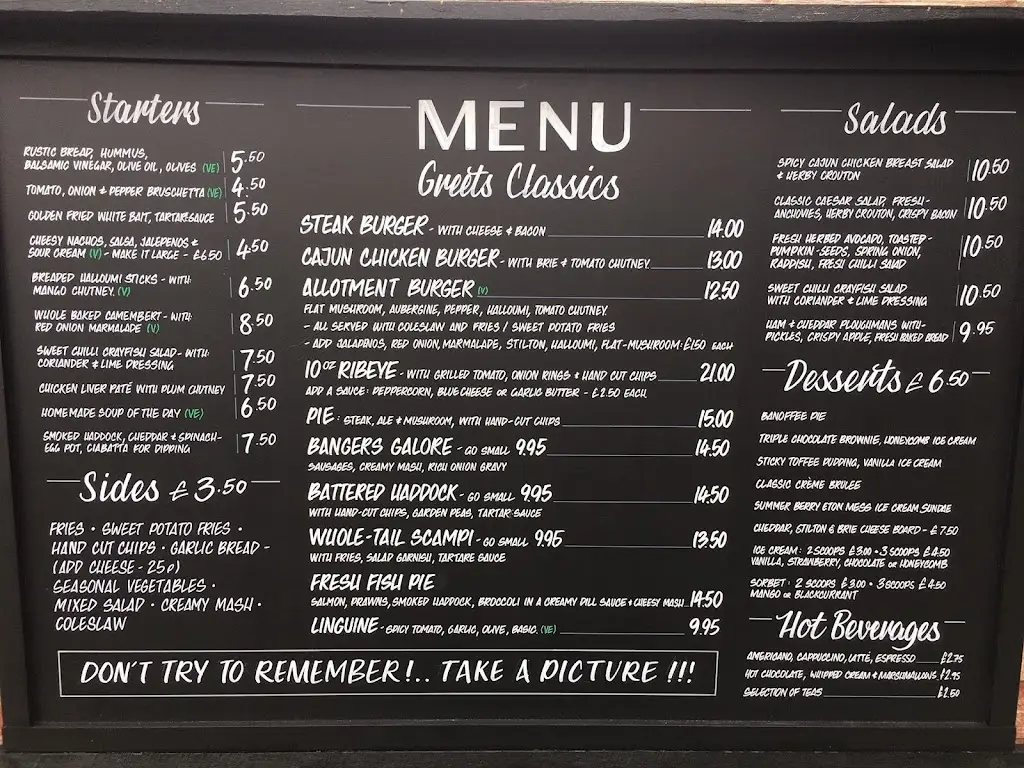 Starters
RUSTIC BREAD, HUMMUS,
BALSAMIC VINEGAR, OLIVE OIL, OLIVES (VE) 5.50
TOMATO, ONION & PEPPER BRUSCHETTA (VE) 4.50
GOLDEN FRIED WHITE BAIT, TARTARE SAUCE 5.50
CHEESY NACHOS, SALSA, JALEPENOS &
SOUR CREAM (V) - MAKE IT LARGE - £6.50 4.50
BREADED HALLOUMI STICKS - WITH
MANGO CHUTNEY. (V) 6.50
WHOLE BAKED CAMEMBERT - WITH
RED ONION MARMALADE (V) 8.50
SWEET CHILLI CRAYFISH SALAD - WITH
CORIANDER & LIME DRESSING 7.50
CHICKEN LIVER PATÉ WITH PLUM CHUTNEY 7.50
HOMEMADE SOUP OF THE DAY (VE) 6.50
SMOKED HADDOCK, CHEDDAR & SPINACH-
EGG POT, CIABATTA FOR DIPPING 7.50
Sides £3.50
FRIES · SWEET POTATO FRIES ·
HAND CUT CHIPS · GARLIC BREAD -
(ADD CHEESE - 25p)
SEASONAL VEGETABLES ·
MIXED SALAD · CREAMY MASH ·
COLESLAW
MENU
Greets Classics
STEAK BURGER - WITH CHEESE & BACON 14.00
CAJUN CHICKEN BURGER - WITH BRIE & TOMATO CHUTNEY 13.00
ALLOTMENT BURGER (V) 12.50
FLAT MUSHROOM, AUBERGINE, PEPPER, HALLOUMI, TOMATO CHUTNEY
- ALL SERVED WITH COLESLAW AND FRIES / SWEET POTATO FRIES
- ADD JALAPANOS, RED ONION, MARMALADE, STILTON, HALLOUMI, FLAT-MUSHROOM: £1.50 EACH
10oz RIBEYE - WITH GRILLED TOMATO, ONION RINGS & HAND CUT CHIPS 21.00
ADD A SAUCE: PEPPERCORN, BLUE CHEESE OR GARLIC BUTTER - £2.50 EACH
PIE: STEAK, ALE & MUSHROOM, WITH HAND-CUT CHIPS 15.00
BANGERS GALORE - GO SMALL 9.95 14.50
SAUSAGES, CREAMY MASH, RICH ONION GRAVY
BATTERED HADDOCK - GO SMALL 9.95 14.50
WITH HAND-CUT CHIPS, GARDEN PEAS, TARTAR SAUCE
WHOLE-TAIL SCAMPI - GO SMALL 9.95 13.50
WITH FRIES, SALAD GARNISH, TARTARE SAUCE
FRESH FISH PIE
SALMON, PRAWNS, SMOKED HADDOCK, BROCCOLI IN A CREAMY DILL SAUCE & CHEESY MASH 14.50
LINGUINE - SPICY TOMATO, GARLIC, OLIVE, BASIC. (VE) 9.95
Salads
SPICY CAJUN CHICKEN BREAST SALAD
& HERBY CROUTON 10.50
CLASSIC CAESAR SALAD, FRESH-
ANCHOVIES, HERBY CROUTON, CRISPY BACON 10.50
FRESH HERBED AVOCADO, TOASTED-
PUMPKIN-SEEDS, SPRING ONION,
RADDISH, FRESH CHILLI SALAD 10.50
SWEET CHILLI CRAYFISH SALAD
WITH CORIANDER & LIME DRESSING 10.50
HAM & CHEDDAR PLOUGHMANS WITH-
PICKLES, CRISPY APPLE, FRESH BAKED BREAD 9.95
Desserts £6.50
BANOFFEE PIE
TRIPLE CHOCOLATE BROWNIE, HONEYCOMB ICE CREAM
STICKY TOFFEE PUDDING, VANILLA ICE CREAM
CLASSIC CRÈME BRULEE
SUMMER BERRY ETON MESS ICE CREAM SUNDAE
CHEDDAR, STILTON & BRIE CHEESE BOARD - £7.50
ICE CREAM: 2 SCOOPS £3.00 · 3 SCOOPS £4.50
VANILLA, STRAWBERRY, CHOCOLATE OR HONEYCOMB
SORBET: 2 SCOOPS £3.00 · 3 SCOOPS £4.50
MANGO OR BLACKCURRANT
Hot Beverages
AMERICANO, CAPPUCCINO, LATTÉ, ESPRESSO £2.75
HOT CHOCOLATE, WHIPPED CREAM & MARSHMALLOWS £2.95
SELECTION OF TEAS £2.50
DON'T TRY TO REMEMBER!.. TAKE A PICTURE !!!